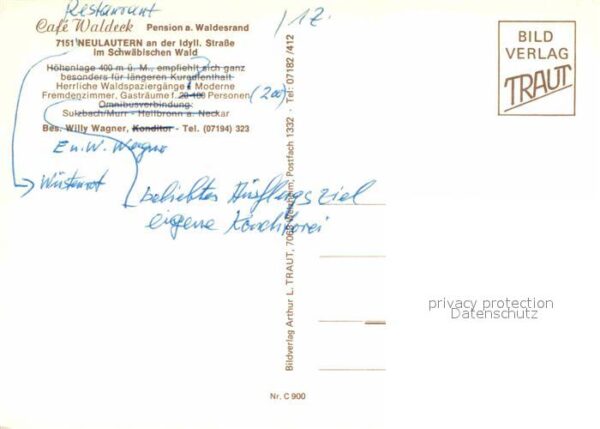 Restaurant
Café Waldeck Pension a. Waldesrand
7151 NEULAUTERN an der Idyll. Straße
im Schwäbischen Wald
Höhenlage 400 m ü. M., empfiehlt sich ganz
besonders für längeren Kuraufenthalt
Herrliche Waldspaziergänge Moderne
Fremdenzimmer, Gasträume f. 20-100 Personen (200)
Omnibusverbindung:
Sulzbach/Murr - Heilbronn a. Neckar
Bes. Willy Wagner, Konditor - Tel. (07194) 323
E. u. W. Wagner
Wüstenrot
beliebtes Ausflugsziel
eigene Konditorei
1Z.
Bildverlag Arthur L. TRAUT, 7063 Welzheim, Postfach 1332 · Tel: 07182/412
BILD
VERLAG
TRAUT
privacy protection
Datenschutz
Nr. C 900